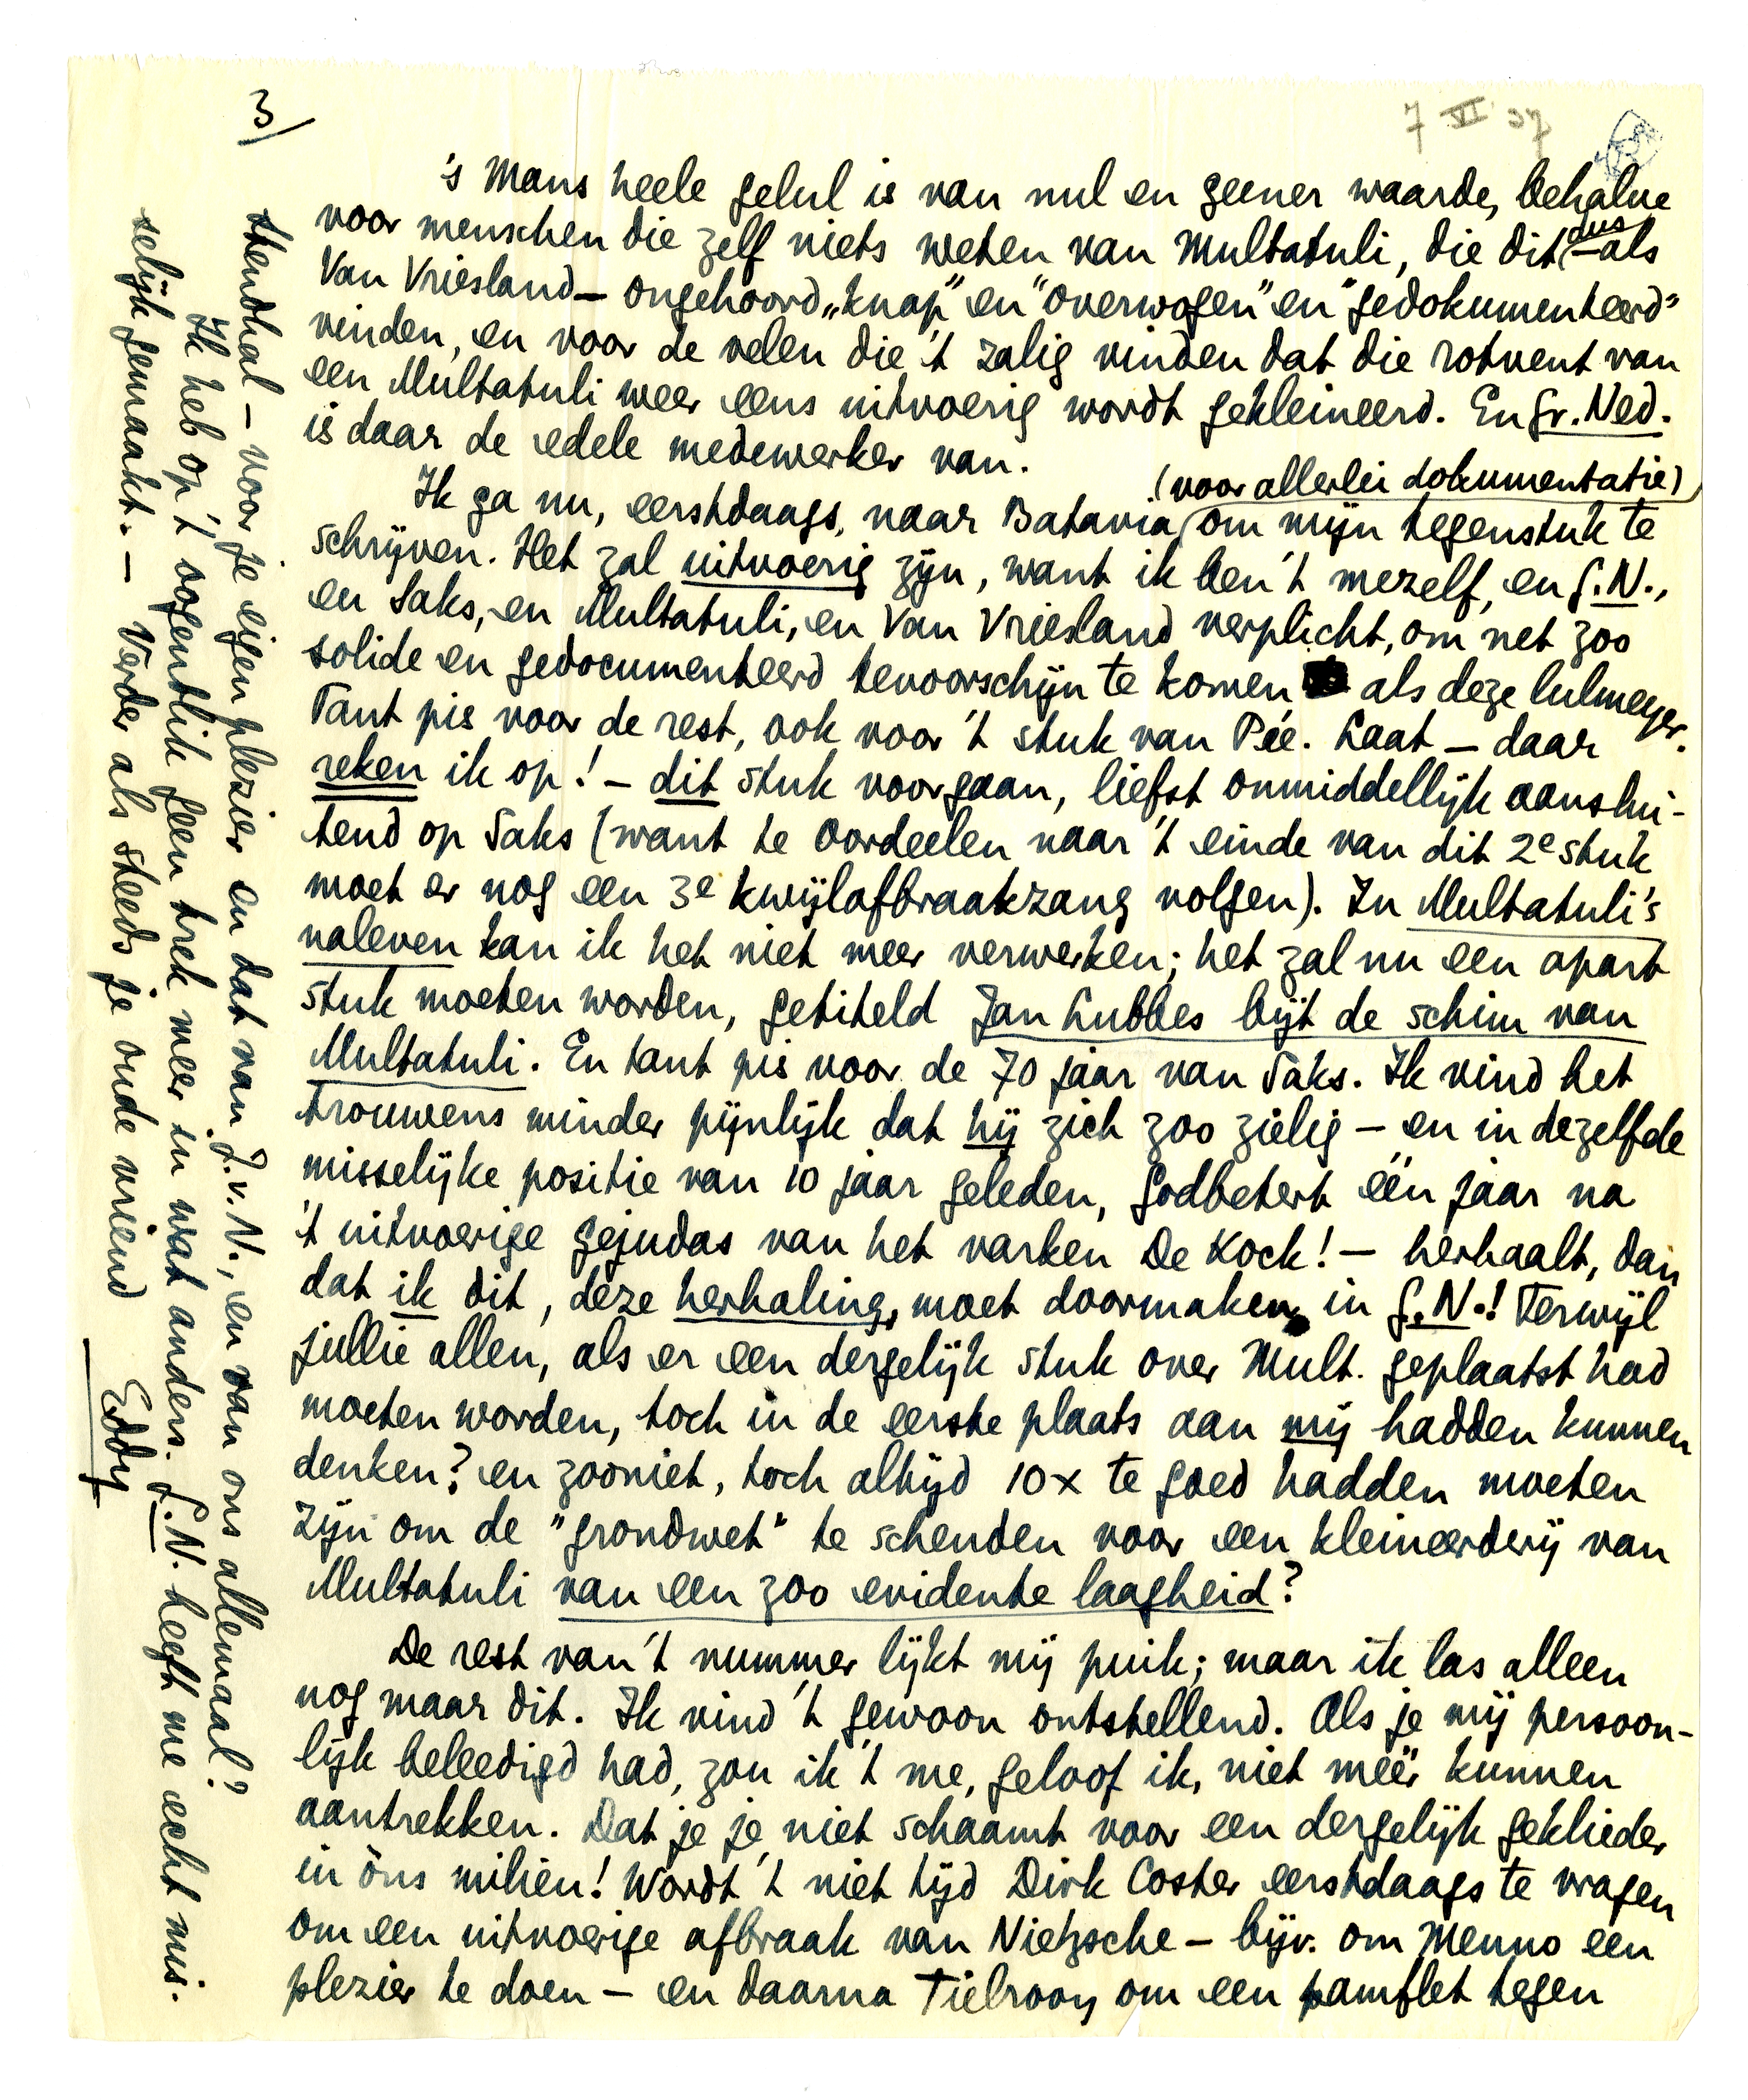 3/
7 VI 37
's Mans heele gelul is van nul en geener waarde, behalve
voor menschen die zelf niets weten van Multatuli, die dit dus – als
Van Vriesland – ongehoord „knap” en “overwogen” en “gedokumenteerd”
vinden, en voor de velen die 't zalig vinden dat die rotvent van
een Multatuli weer eens uitvoerig wordt gekleineerd. En Gr. Ned.
is daar de edele medewerker van.
Ik ga nu, eerstdaags, naar Batavia (voor allerlei dokumentatie) om mijn tegenstuk te
schrijven. Het zal uitvoerig zijn, want ik ben 't mezelf, en G.N.,
en Saks, en Multatuli, en Van Vriesland verplicht, om net zoo
solide en gedocumenteerd tevoorschijn te komen als deze lulmeyer.
Tant pis voor de rest, ook voor 't stuk van Pée. Laat – daar
reken ik op! – dit stuk voorgaan, liefst onmiddellijk aanslui-
tend op Saks (want te oordeelen naar 't einde van dit 2e stuk
moet er nog een 3e kwijlafbraakzang volgen). In Multatuli's
naleven kan ik het niet meer verwerken; het zal nu een apart
stuk moeten worden, getiteld Jan Lubbes bijt de schim van
Multatuli. En tant pis voor de 70 jaar van Saks. Ik vind het
trouwens minder pijnlijk dat hij zich zoo zielig – en in dezelfde
misselijke positie van 10 jaar geleden, godbetert één jaar na
't uitvoerige gejudas van het varken De Kock! – herhaalt, dan
dat ik dit, deze herhaling, moet doormaken in G.N.! Terwijl
jullie allen, als er een dergelijk stuk over Mult. geplaatst had
moeten worden, toch in de eerste plaats aan mij hadden kunnen
denken? en zooniet, toch altijd 10x te goed hadden moeten
zijn om de “grondwet” te schenden voor een kleineerderij van
Multatuli van een zoo evidente laagheid?
De rest van 't nummer lijkt mij puik; maar ik las alleen
nog maar dit. Ik vind 't gewoon ontstellend. Als je mij persoon-
lijk beleedigd had, zou ik 't me, geloof ik, niet méér kunnen
aantrekken. Dat je je niet schaamt voor een dergelijk geklieder
in óns milieu! Wordt 't niet tijd Dirk Coster eerstdaags te vragen
om een uitvoerige afbraak van Nietzsche – bijv. om Menno een
plezier te doen – en daarna Tielrooy om een pamflet tegen
Stendhal – voor je eigen plezier en dat van J.v.N., en van ons allemaal?
Ik heb op 't oogenblik geen trek meer in wat anders. G.N. heeft me echt mis-
selijk gemaakt. – Verder als steeds je oude vriend
Eddy